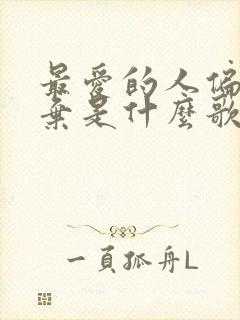 最愛的人偏
棄是什麼歌
一頁孤舟L